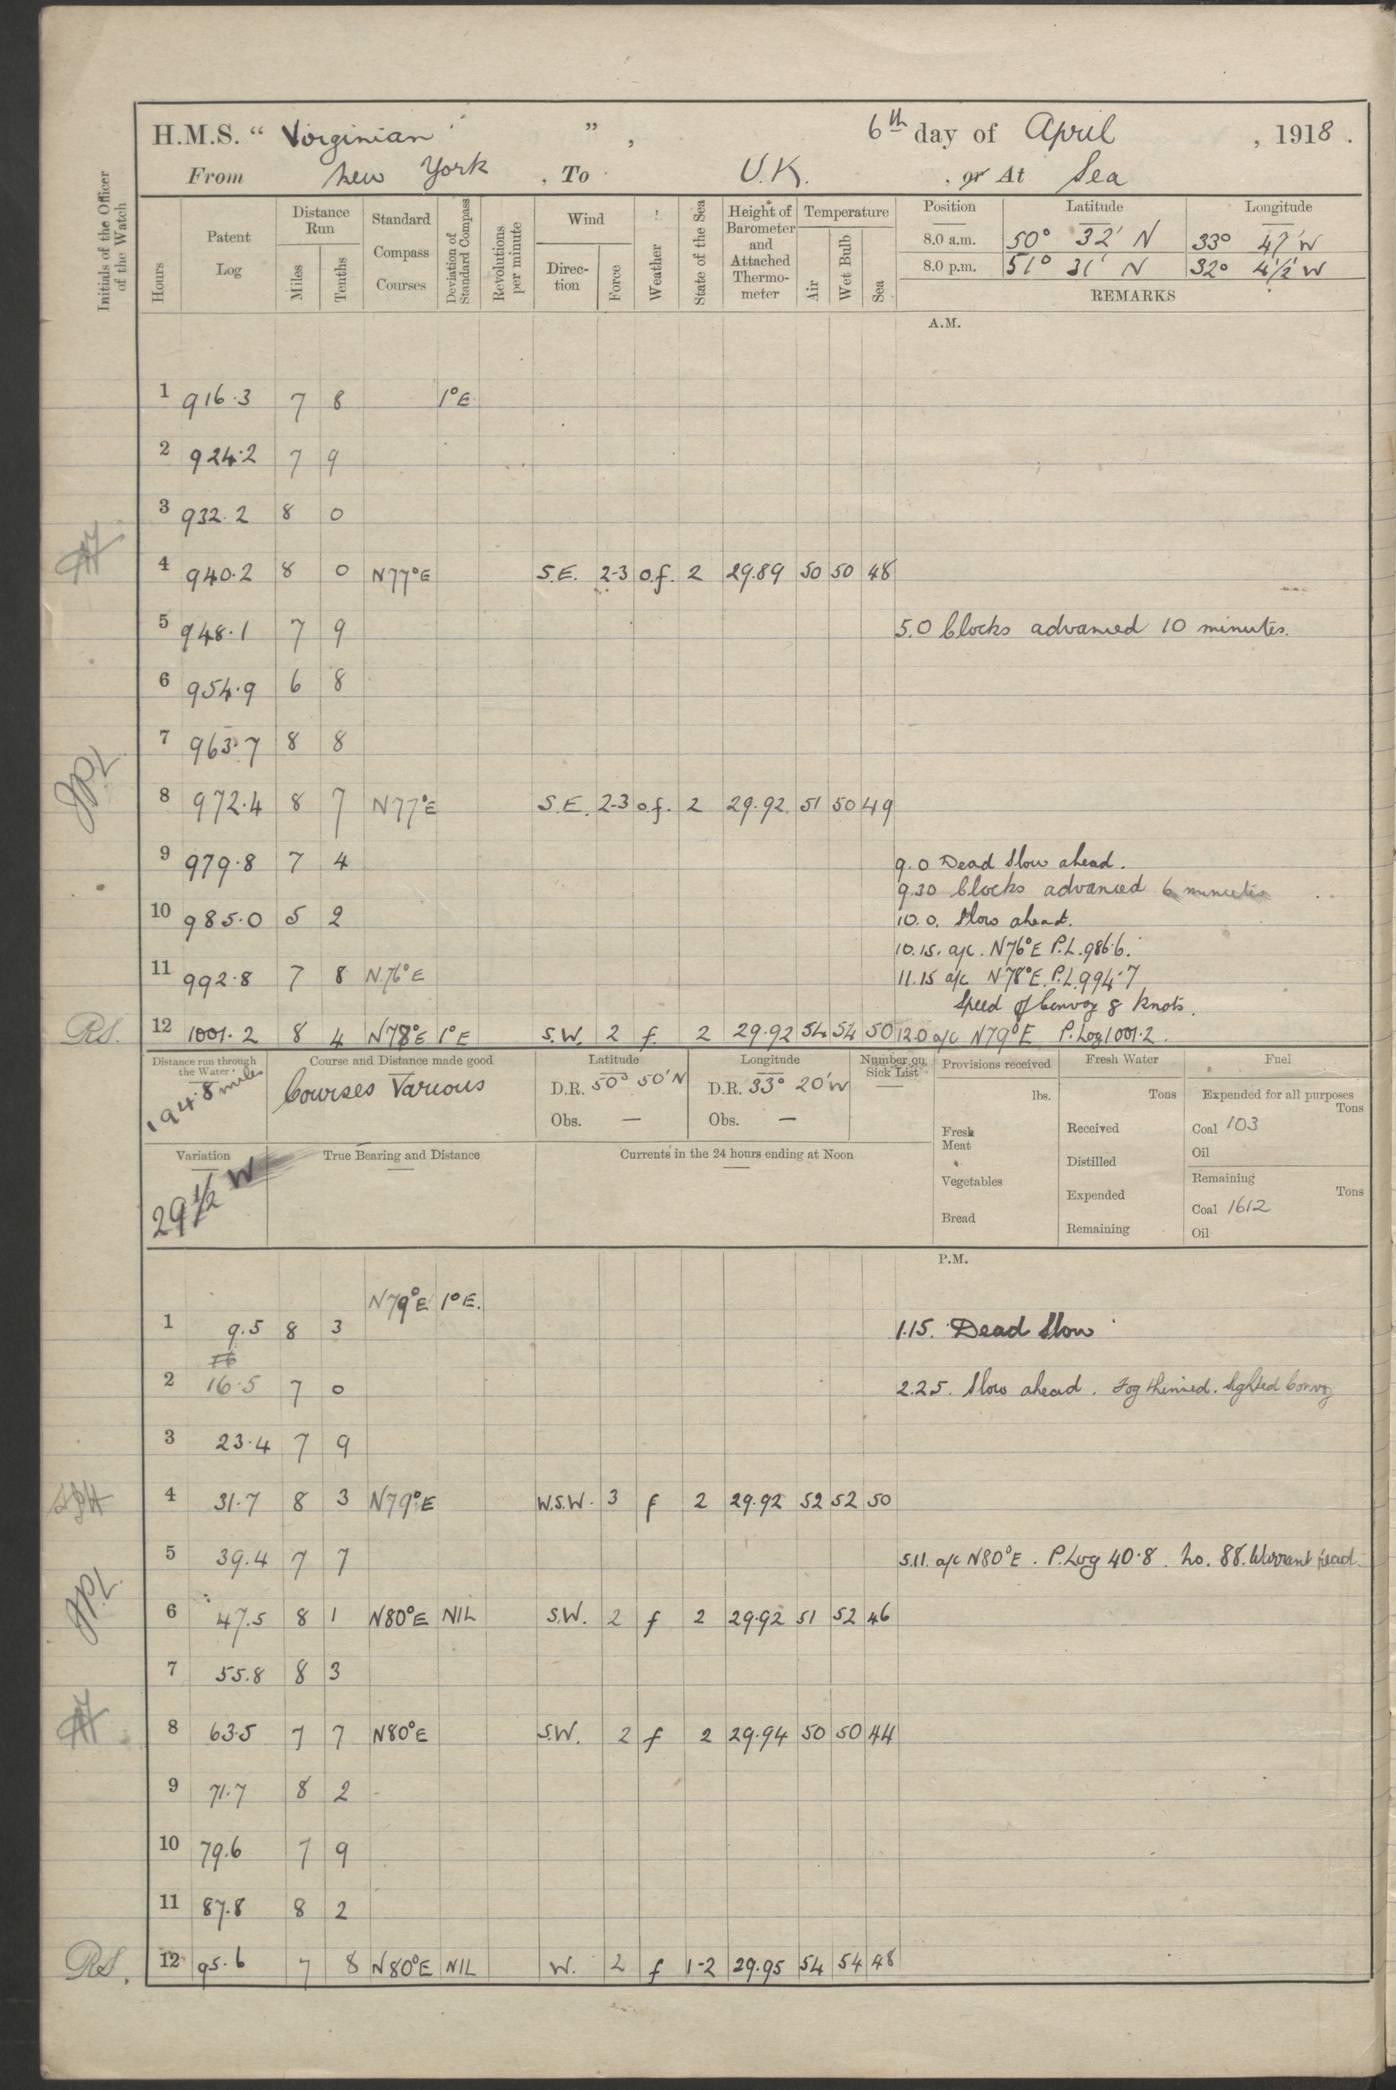 H.M.S. " Virginian " , 6th day of April , 1918 .
From New York , To U.K. , or At Sea
Initials of the Officer of the Watch
Hours Patent Log Distance Run Miles Tenths Standard Compass Courses Deviation of Standard Compass Revolutions per minute Wind Direc-tion Force Weather State of the Sea Height of Barometer and Attached Thermo-meter Temperature Air Wet Bulb Sea
Position Latitude Longitude
8.0 a.m. 50° 32' N 33° 47' W
8.0 p.m. 51° 31' N 32° 4½' W
REMARKS
A.M.
1 916.3 7 8 1°E
2 924.2 7 9
3 932.2 8 0
4 940.2 8 0 N77°E S.E. 2-3 o.f. 2 29.89 50 50 48
5 948.1 7 9 5.0 Clocks advanced 10 minutes.
6 954.9 6 8
7 963.7 8 8
8 972.4 8 7 N77°E S.E. 2-3 o.f. 2 29.92 51 50 49
9 979.8 7 4 9.0 Dead Slow ahead.
9.30 Clocks advanced 6 minutes
10 985.0 5 2 10.0. Slow ahead.
10.15. a/c. N76°E P.L. 986.6.
11 992.8 7 8 N.76°E 11.15 a/c N78°E. P.L. 994.7
Speed of Convoy 8 knots.
RS. 12 1001.2 8 4 N78°E 1°E S.W. 2 f. 2 29.92 54 54 50 12.0 a/c N79°E P.Log 1001.2
Distance run through the Water
194.8 miles
Course and Distance made good
Courses Various
Latitude
D.R. 50° 50' N
Obs. —
Longitude
D.R. 33° 20' W
Obs. —
Number on Sick List
Provisions received
lbs.
Fresh Meat
Vegetables
Bread
Fresh Water
Tons
Received
Distilled
Expended
Remaining
Fuel
Expended for all purposes
Tons
Coal 103
Oil
Remaining
Tons
Coal 1612
Oil
Variation
29½ W
True Bearing and Distance
Currents in the 24 hours ending at Noon
P.M.
N79°E 1°E.
1 9.5 8 3 1.15. Dead Slow
2 16.5 7 0 2.25. Slow ahead. Fog thinned. Sighted Convoy
3 23.4 7 9
4 31.7 8 3 N79°E W.S.W. 3 f 2 29.92 52 52 50
5 39.4 7 7 5.11. a/c N80°E. P.Log 40.8. No. 88. Warrant read.
6 47.5 8 1 N80°E NIL S.W. 2 f 2 29.92 51 52 46
7 55.8 8 3
8 63.5 7 7 N80°E S.W. 2 f 2 29.94 50 50 44
9 71.7 8 2
10 79.6 7 9
11 87.8 8 2
RS. 12 95.6 7 8 N80°E NIL W. 2 f 1-2 29.95 54 54 48